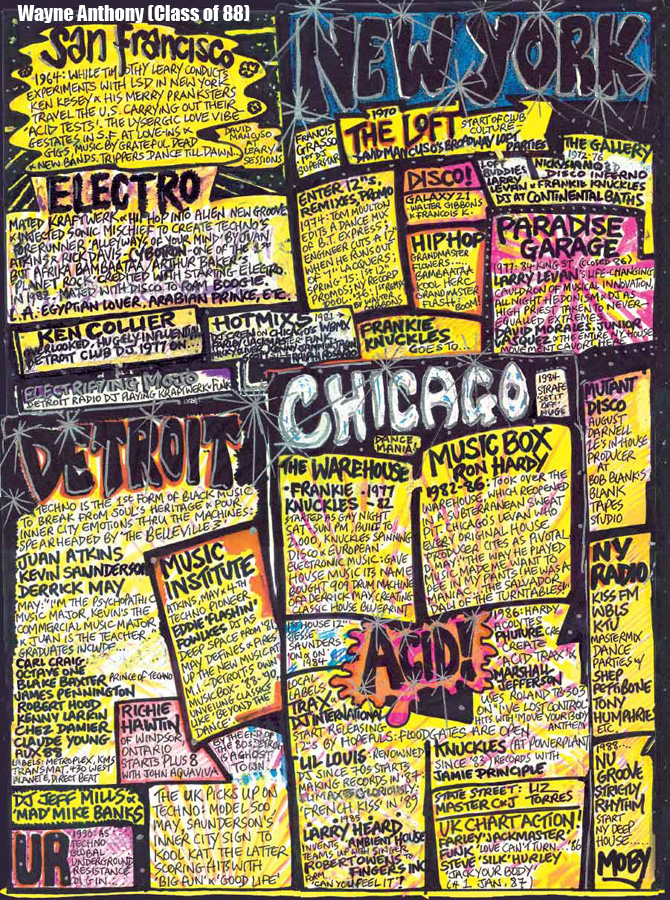 Wayne Anthony (Class of 88)
San Francisco
1964: WHILE TIMOTHY LEARY CONDUCTS
EXPERIMENTS WITH LSD IN NEW YORK
KEN KESEY & HIS MERRY PRANKSTERS
TRAVEL THE U.S. CARRYING OUT THEIR
'ACID TESTS'. THE LYSERGIC LOVE VIBE
GESTATES IN S.F. AT LOVE-INS &
GIGS, MUSIC BY GRATEFUL DEAD
& NEW BANDS. TRIPPERS DANCE TILL DAWN...
DAVID
MANCUSO
AT
LEARY
SESSIONS
ELECTRO
MATED KRAFTWERK & HIP HOP INTO ALIEN NEW GROOVE
& INJECTED SONIC MISCHIEF TO CREATE TECHNO'S
FORERUNNER. 'ALLEYWAYS OF YOUR MIND' BY JUAN
ATKINS & RICK DAVIS - CYBOTRON - WAS THE 1ST
BUT AFRIKA BAMBAATAA & ARTHUR BAKER'S
'PLANET ROCK' CREDITED WITH STARTING ELECTRO
IN 1982. MATED WITH DISCO TO FORM BOOGIE.
L.A. EGYPTIAN LOVER, ARABIAN PRINCE, ETC.
KEN COLLIER
OVERLOOKED, HUGELY INFLUENTIAL
DETROIT CLUB DJ 1977 ON...
HOTMIX 5 1981
ON CHICAGO'S
FARLEY 'JACKMASTER' FUNK
RALPHI ROSARIO
ELECTRIFYING MOJO
DETROIT RADIO DJ PLAYING KRAFTWERK & FUNK
NEW YORK
FRANCIS
GRASSO
1ST DJ
SUPERSTAR
1970
THE LOFT
START OF CLUB
CULTURE
DAVID MANCUSO'S BROADWAY LOFT
PARTIES
THE GALLERY
1972-76
NICKY SIANO
DISCO INFERNO
LOFT
BUDDIES
LARRY
LEVAN & FRANKIE KNUCKLES
DJ AT CONTINENTAL BATHS
ENTER 12"s
REMIXES, PROMO
1974: TOM MOULTON
EDITS A DANCE MIX
OF B.T. EXPRESS.
ENGINEER CUTS A 12"
WHEN HE RUNS OUT
OF 7" LACQUERS.
SPRING '75: 1ST 12"
PROMOS. NY RECORD
POOL
DISCO!
GALAXY 21
WALTER GIBBONS
& FRANCOIS K.
HIPHOP
GRANDMASTER
FLOWERS
BAMBAATAA
KOOL HERC
GRANDMASTER
FLASH
BOOM!
PARADISE
GARAGE
1977: 84 KING ST. (CLOSED 86)
LARRY LEVAN'S LIFE-CHANGING
CAULDRON OF MUSICAL INNOVATION,
ALL NIGHT HEDONISM & DJ AS
HIGH PRIEST TAKEN TO NEVER-
EQUALLED EXTREMES.
DAVID MORALES, JUNIOR
VASQUEZ & THE ENTIRE NY HOUSE
MOVEMENT CAVORT HERE
FRANKIE
KNUCKLES
GOES TO...
CHICAGO
1984
STRAFE
'SET IT
OFF'
HUGE
DANCE
MANIA!
THE WAREHOUSE
FRANKIE 1977
KNUCKLES - 82
STARTED AS GAY NIGHT
SAT - SUN PM. BUILT TO
2000. KNUCKLES SPINNING
DISCO & EUROPEAN
ELECTRONIC MUSIC: GAVE
HOUSE MUSIC ITS NAME.
BOUGHT 909 DRUM MACHINE
OFF DERRICK MAY, CREATING
CLASSIC HOUSE BLUEPRINT
MUSIC BOX
RON HARDY
1982-86: TOOK OVER THE
WAREHOUSE, WHICH REOPENED
IN A SUBTERRANEAN SWEAT
PIT. CHICAGO'S LEVAN WHO
EVERY ORIGINAL HOUSE
PRODUCER CITES AS PIVOTAL.
D.MAY: "THE WAY HE PLAYED
MUSIC MADE ME WANT TO
DIE IN MY PANTS. HE WAS A
MANIAC, THE SALVADOR
DALI OF THE TURNTABLES!"
MUTANT
DISCO
AUGUST
DARNELL
ZE'S IN-HOUSE
PRODUCER
AT
BOB BLANK'S
BLANK
TAPES
STUDIO
NY
RADIO
KISS FM
WBLS
KTU
MASTERMIX
DANCE
PARTIES w/
SHEP
PETTIBONE
TONY
HUMPHRIES
ETC.
1988...
NU
GROOVE
STRICTLY
RHYTHM
START
NY DEEP
HOUSE.....
MOBY
DETROIT
TECHNO IS THE 1ST FORM OF BLACK MUSIC
TO BREAK FROM SOUL'S HERITAGE & POUR
INNER CITY EMOTIONS THRU THE MACHINES:
SPEARHEADED BY 'THE BELLEVILLE 3'.
JUAN ATKINS
KEVIN SAUNDERSON
DERRICK MAY
MAY: "I'M THE PSYCHOPATHIC
MUSIC MAJOR, KEVIN'S THE
COMMERCIAL MUSIC MAJOR
& JUAN IS THE TEACHER."
GRADUATES INCLUDE...
CARL CRAIG
OCTAVE ONE
BLAKE BAXTER PRINCE OF TECHNO
JAMES PENNINGTON
ROBERT HOOD
KENNY LARKIN
CHEZ DAMIER
CLAUDE YOUNG
AUX 88
LABELS: METROPLEX, KMS
TRANSMAT, 430 WEST
PLANET E, DIRECT BEAT
MUSIC
INSTITUTE
ATKINS, MAY & 4TH
TECHNO PIONEER
EDDIE 'FLASHIN''
FOWLKES DJ AS
DEEP SPACE FROM '81.
MAY DEFINES & FIRES
UP THE NEW MUSIC AT
M.I., DETROIT'S OWN
MUSIC BOX - '88-90,
UNVEILING CLASSICS
LIKE 'BEYOND THE
DANCE'
RICHIE
HAWTIN
OF WINDSOR,
ONTARIO
STARTS PLUS 8
WITH JOHN AQUAVIVA
BY THE END OF
THE 80S, DETROIT
IS A GHOST
TOWN
DJ JEFF MILLS &
'MAD' MIKE BANKS
UR
1990: AS
TECHNO
GOES
GLOBAL,
UNDERGROUND
RESISTANCE
DIG IN...
THE UK PICKS UP ON
TECHNO: MODEL 500
MAY, SAUNDERSON'S
INNER CITY SIGN TO
KOOL KAT, THE LATTER
SCORING HITS WITH
'BIG FUN' & 'GOOD LIFE'
1ST HOUSE 12"
JESSE
SAUNDERS
'ON & ON'
1984
LOCAL
LABELS
TRAX &
DJ INTERNATIONAL
START RELEASING
12"S BY HOPEFULS: FLOODGATES ARE OPEN
ACID!
1986: HARDY
ACOLYTES
PHUTURE
CREATE
'ACID TRAX' &
MARSHALL
JEFFERSON
USES ROLAND TB-303
ON 'I'VE LOST CONTROL'
HITS WITH 'MOVE YOUR BODY'
ANTHEM
LIL LOUIS: RENOWNED
DJ SINCE 70S STARTS
MAKING RECORDS IN '87
CLIMAXES GLORIOUSLY:
'FRENCH KISS' IN '89
1985
LARRY HEARD
INVENTS AMBIENT HOUSE
TEAMS UP WITH SINGER
ROBERT OWENS TO
FORM FINGERS INC
'CAN YOU FEEL IT'!
KNUCKLES (AT POWERPLANT
SINCE '83) RECORDS WITH
JAMIE PRINCIPLE
STATE STREET: LIZ
MASTER C&J TORRES
UK CHART ACTION!
FARLEY 'JACKMASTER'
FUNK 'LOVE CAN'T TURN...' 86
STEVE 'SILK' HURLEY
'JACK YOUR BODY'
(#1 JAN. 87)